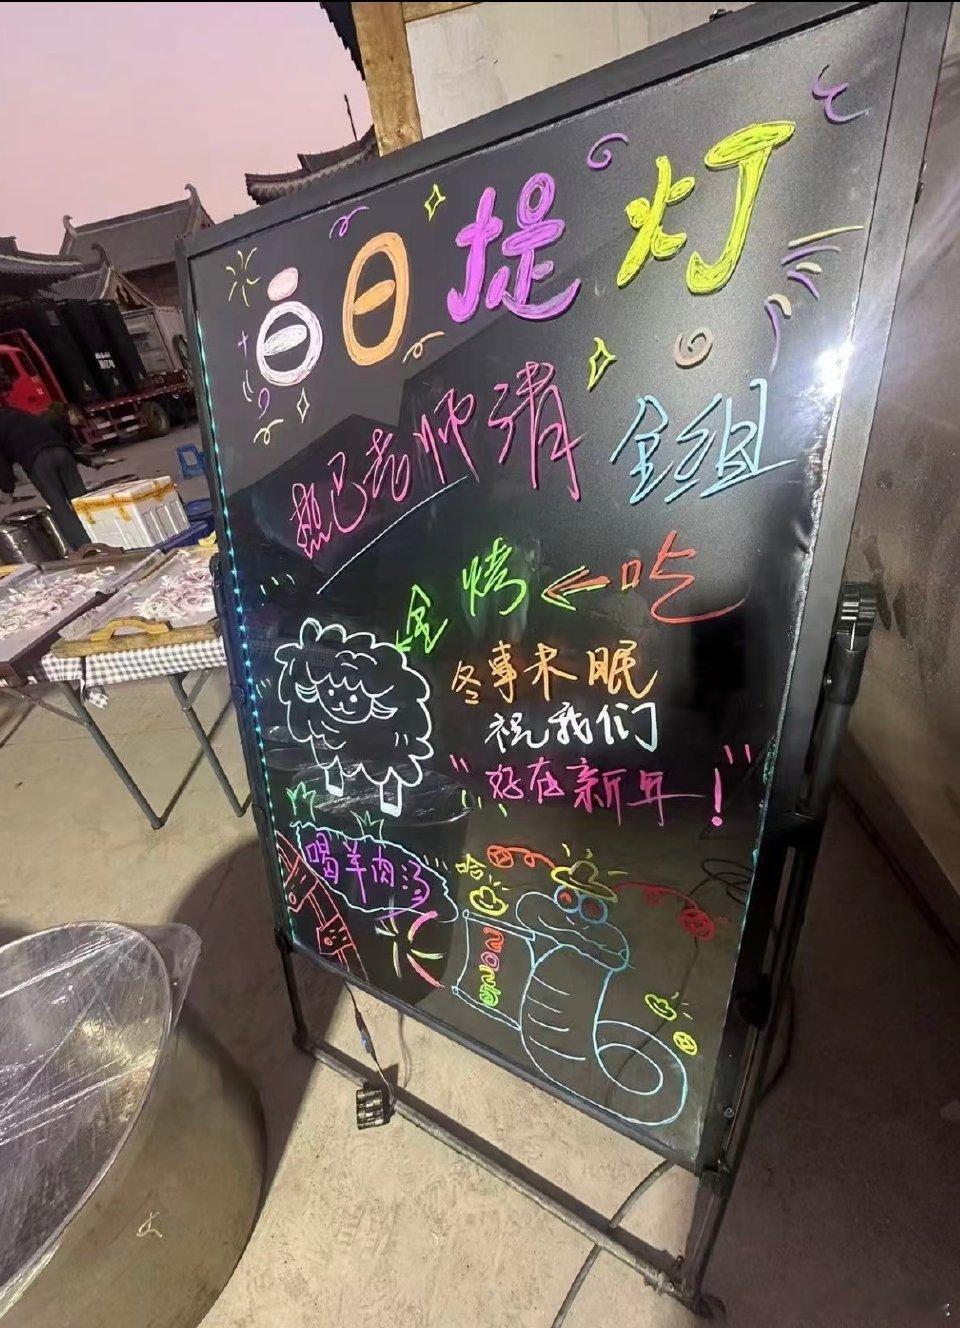 白日提灯
热巴老师请全组
吃←全烤
冬事未眠
祝我们
"好在新年！"
喝羊肉汤
哈
2025